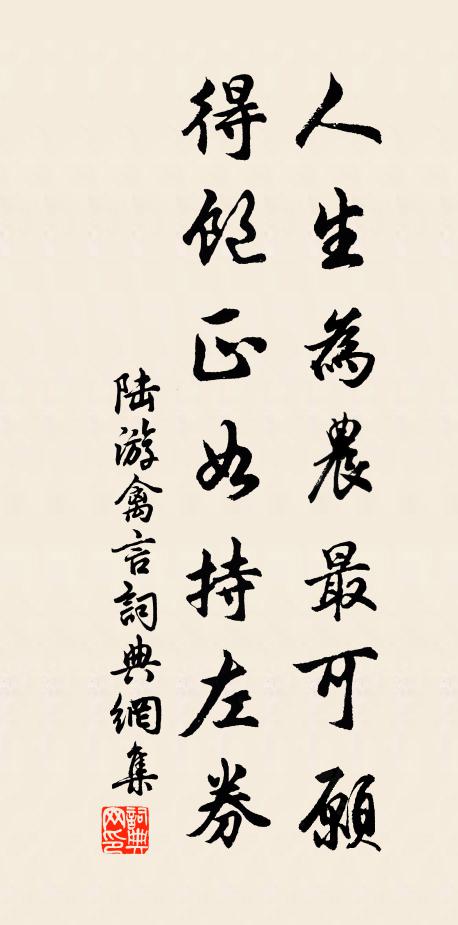 人生為農最可願
得飽正如持左券
陆游禽言詞典網集
詞典網印